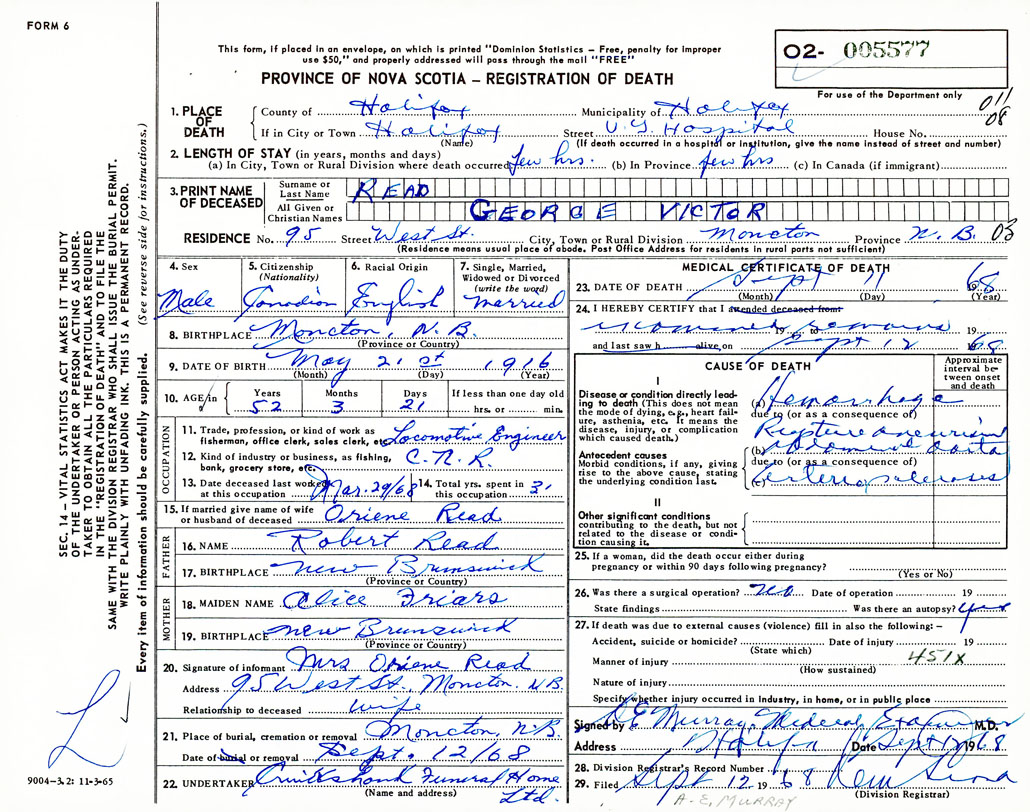 FORM 6
This form, if placed in an envelope, on which is printed "Dominion Statistics – Free, penalty for improper
use $50," and properly addressed will pass through the mail "FREE"
PROVINCE OF NOVA SCOTIA – REGISTRATION OF DEATH
O2- 005577
For use of the Department only
011
08
1. PLACE OF DEATH
County of Halifax Municipality of Halifax
If in City or Town Halifax Street V.G. Hospital House No.
(Name) (If death occurred in a hospital or institution, give the name instead of street and number)
2. LENGTH OF STAY (in years, months and days)
(a) In City, Town or Rural Division where death occurred few hrs. (b) In Province few hrs (c) In Canada (if immigrant)
3. PRINT NAME OF DECEASED
Surname or Last Name READ
All Given or Christian Names GEORGE VICTOR
RESIDENCE No. 95 Street West St. City, Town or Rural Division Moncton Province N.B. 03
(Residence means usual place of abode. Post Office Address for residents in rural parts not sufficient)
4. Sex
Male
5. Citizenship
(Nationality)
Canadian
6. Racial Origin
English
7. Single, Married,
Widowed or Divorced
(write the word)
married
8. BIRTHPLACE Moncton, N.B.
(Province or Country)
9. DATE OF BIRTH May 21st 1916
(Month) (Day) (Year)
10. AGE in
Years Months Days If less than one day old
52 3 21 hrs. or min.
OCCUPATION
11. Trade, profession, or kind of work as
fisherman, office clerk, sales clerk, etc. Locomotive Engineer
12. Kind of industry or business, as fishing,
bank, grocery store, etc. C.N.R.
13. Date deceased last worked
at this occupation Mar. 29/68
14. Total yrs. spent in
this occupation 31
15. If married give name of wife
or husband of deceased Oriene Read
FATHER
16. NAME Robert Read
17. BIRTHPLACE New Brunswick
(Province or Country)
MOTHER
18. MAIDEN NAME Alice Friars
19. BIRTHPLACE New Brunswick
(Province or Country)
20. Signature of informant Mrs Oriene Read
Address 95 West St., Moncton. N.B.
Relationship to deceased wife
21. Place of burial, cremation or removal Moncton, N.B.
Date of burial or removal Sept. 12/68
22. UNDERTAKER Funeral Home
Ltd.
(Name and address)
MEDICAL CERTIFICATE OF DEATH
23. DATE OF DEATH Sept 11 68
(Month) (Day) (Year)
24. I HEREBY CERTIFY that I attended deceased from
examined remains 19 to 19
and last saw h alive on Sept 12 1968
CAUSE OF DEATH
Approximate
interval be-
tween onset
and death
I
Disease or condition directly lead-
ing to death (This does not mean
the mode of dying, e.g., heart fail-
ure, asthenia, etc. It means the
disease, injury, or complication
which caused death.)
(a) Hemorrhage
due to (or as a consequence of)
Rupture aneurism
(b) abdominal aorta
Antecedent causes
Morbid conditions, if any, giving
rise to the above cause, stating
the underlying condition last.
due to (or as a consequence of)
(c) arteriosclerosis
II
Other significant conditions
contributing to the death, but not
related to the disease or condi-
tion causing it.
25. If a woman, did the death occur either during
pregnancy or within 90 days following pregnancy?
(Yes or No)
26. Was there a surgical operation? no Date of operation 19
State findings Was there an autopsy? yes
27. If death was due to external causes (violence) fill in also the following: –
Accident, suicide or homicide? Date of injury 19
(State which)
451X
Manner of injury
(How sustained)
Nature of injury
Specify whether injury occurred in industry, in home, or in public place
Signed by A E Murray Medical Examiner M.D.
Address Halifax Date Sept 12 1968
28. Division Registrar's Record Number
29. Filed Sept 12 1968
(Division Registrar)
A. E. MURRAY
SEC. 14 – VITAL STATISTICS ACT MAKES IT THE DUTY
OF THE UNDERTAKER OR PERSON ACTING AS UNDER-
TAKER TO OBTAIN ALL THE PARTICULARS REQUIRED
IN THE "REGISTRATION OF DEATH" AND TO FILE THE
SAME WITH THE DIVISION REGISTRAR WHO SHALL ISSUE THE BURIAL PERMIT.
WRITE PLAINLY WITH UNFADING INK. THIS IS A PERMANENT RECORD.
Every item of information should be carefully supplied. (See reverse side for instructions.)
9004-3.2: 11-3-65